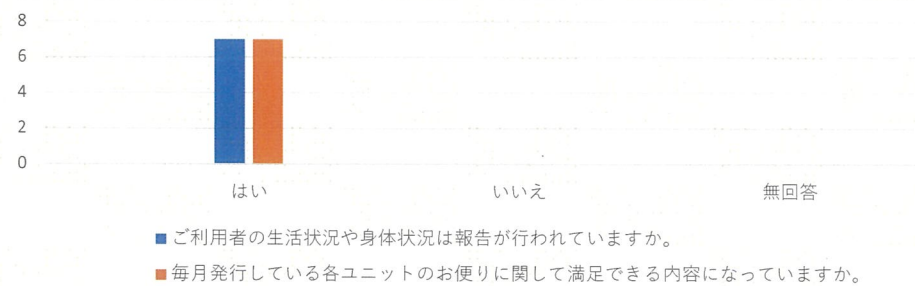 8
6
4
2
0
はい いいえ 無回答
ご利用者の生活状況や身体状況は報告が行われていますか。
毎月発行している各ユニットのお便りに関して満足できる内容になっていますか。